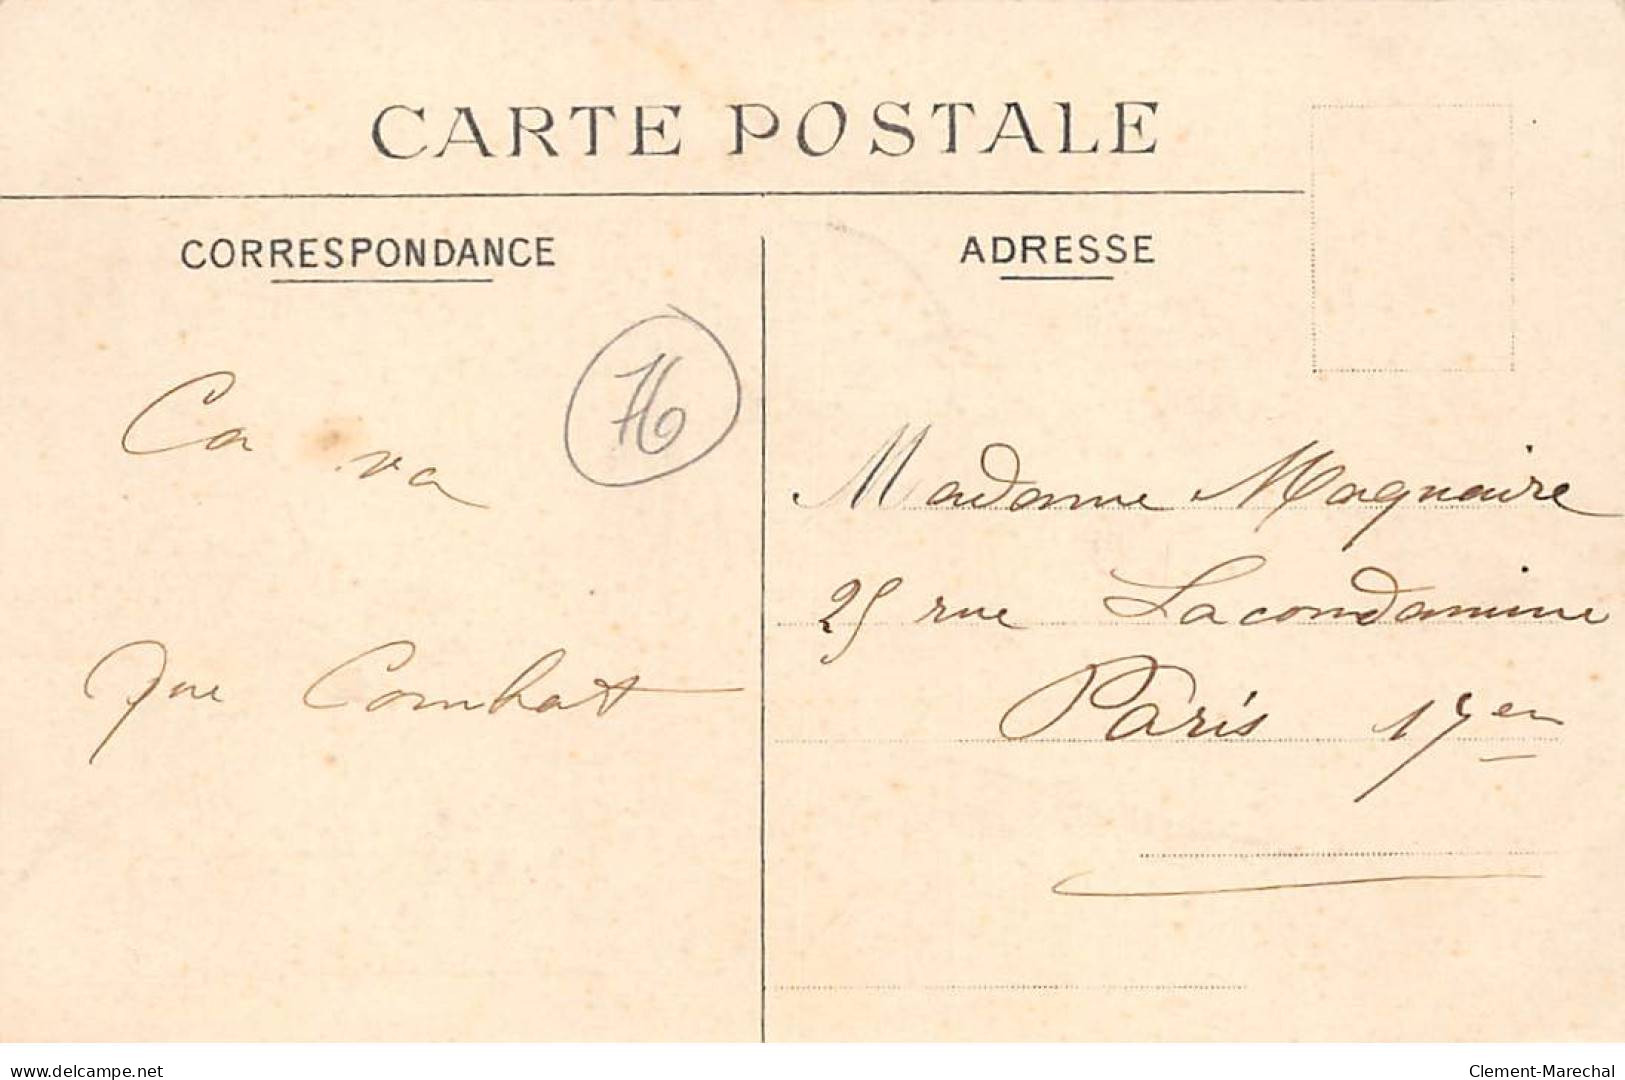 CARTE POSTALE
CORRESPONDANCE
ADRESSE
76
Ca va
que Combat
Madame Maquaire
25 rue Lacondamine
Paris 17en
delcampe.net
Clement-Marechal